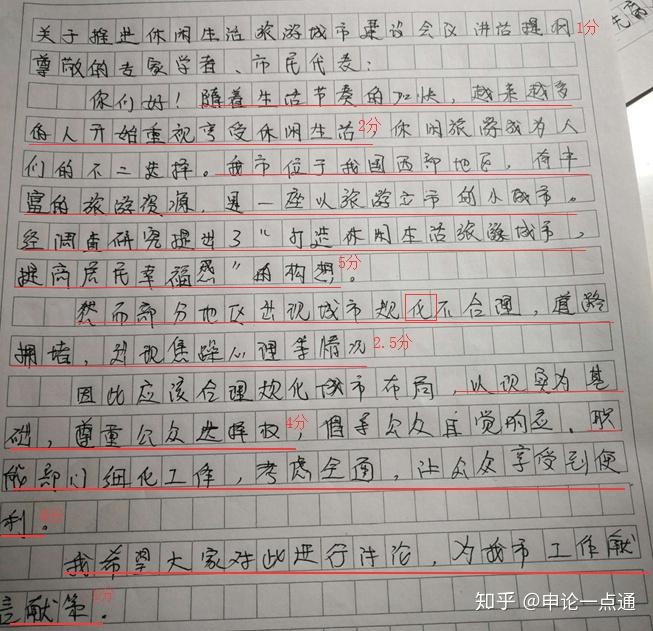 关于推进休闲生活旅游城市建设会议讲话提纲 1分
尊敬的专家学者、市民代表：
你们好！随着生活节奏的加快，越来越多
的人开始重视享受休闲生活 2分 休闲旅游成为人
们的不二选择。我市位于我国西部地区，有丰
富的旅游资源，是一座以旅游立市的小城市。
经调查研究提出了“打造休闲生活旅游城市，
提高居民幸福感”的构想。 5分
然而部分地区出现城市规化不合理，道路
拥堵，出现焦躁心理等情况 2.5分
因此应该合理规化城市布局，以现实为基
础，尊重公众选择权 4分，倡导公众自觉响应。职
能部门细化工作，考虑全面，让公众享受到便
利。
我希望大家对此进行讨论，为我市工作献
言献策。
知乎 @申论一点通